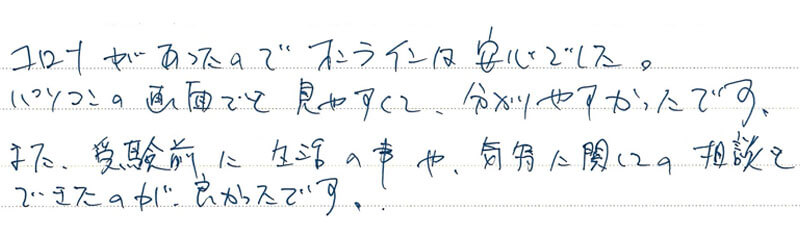 コロナがあったのでオンラインは安心でした。
パソコンの画面でも見やすくて、分かりやすかったです。
また、受験前に生活の事や、勉強に関しての相談も
できたのが、良かったです。